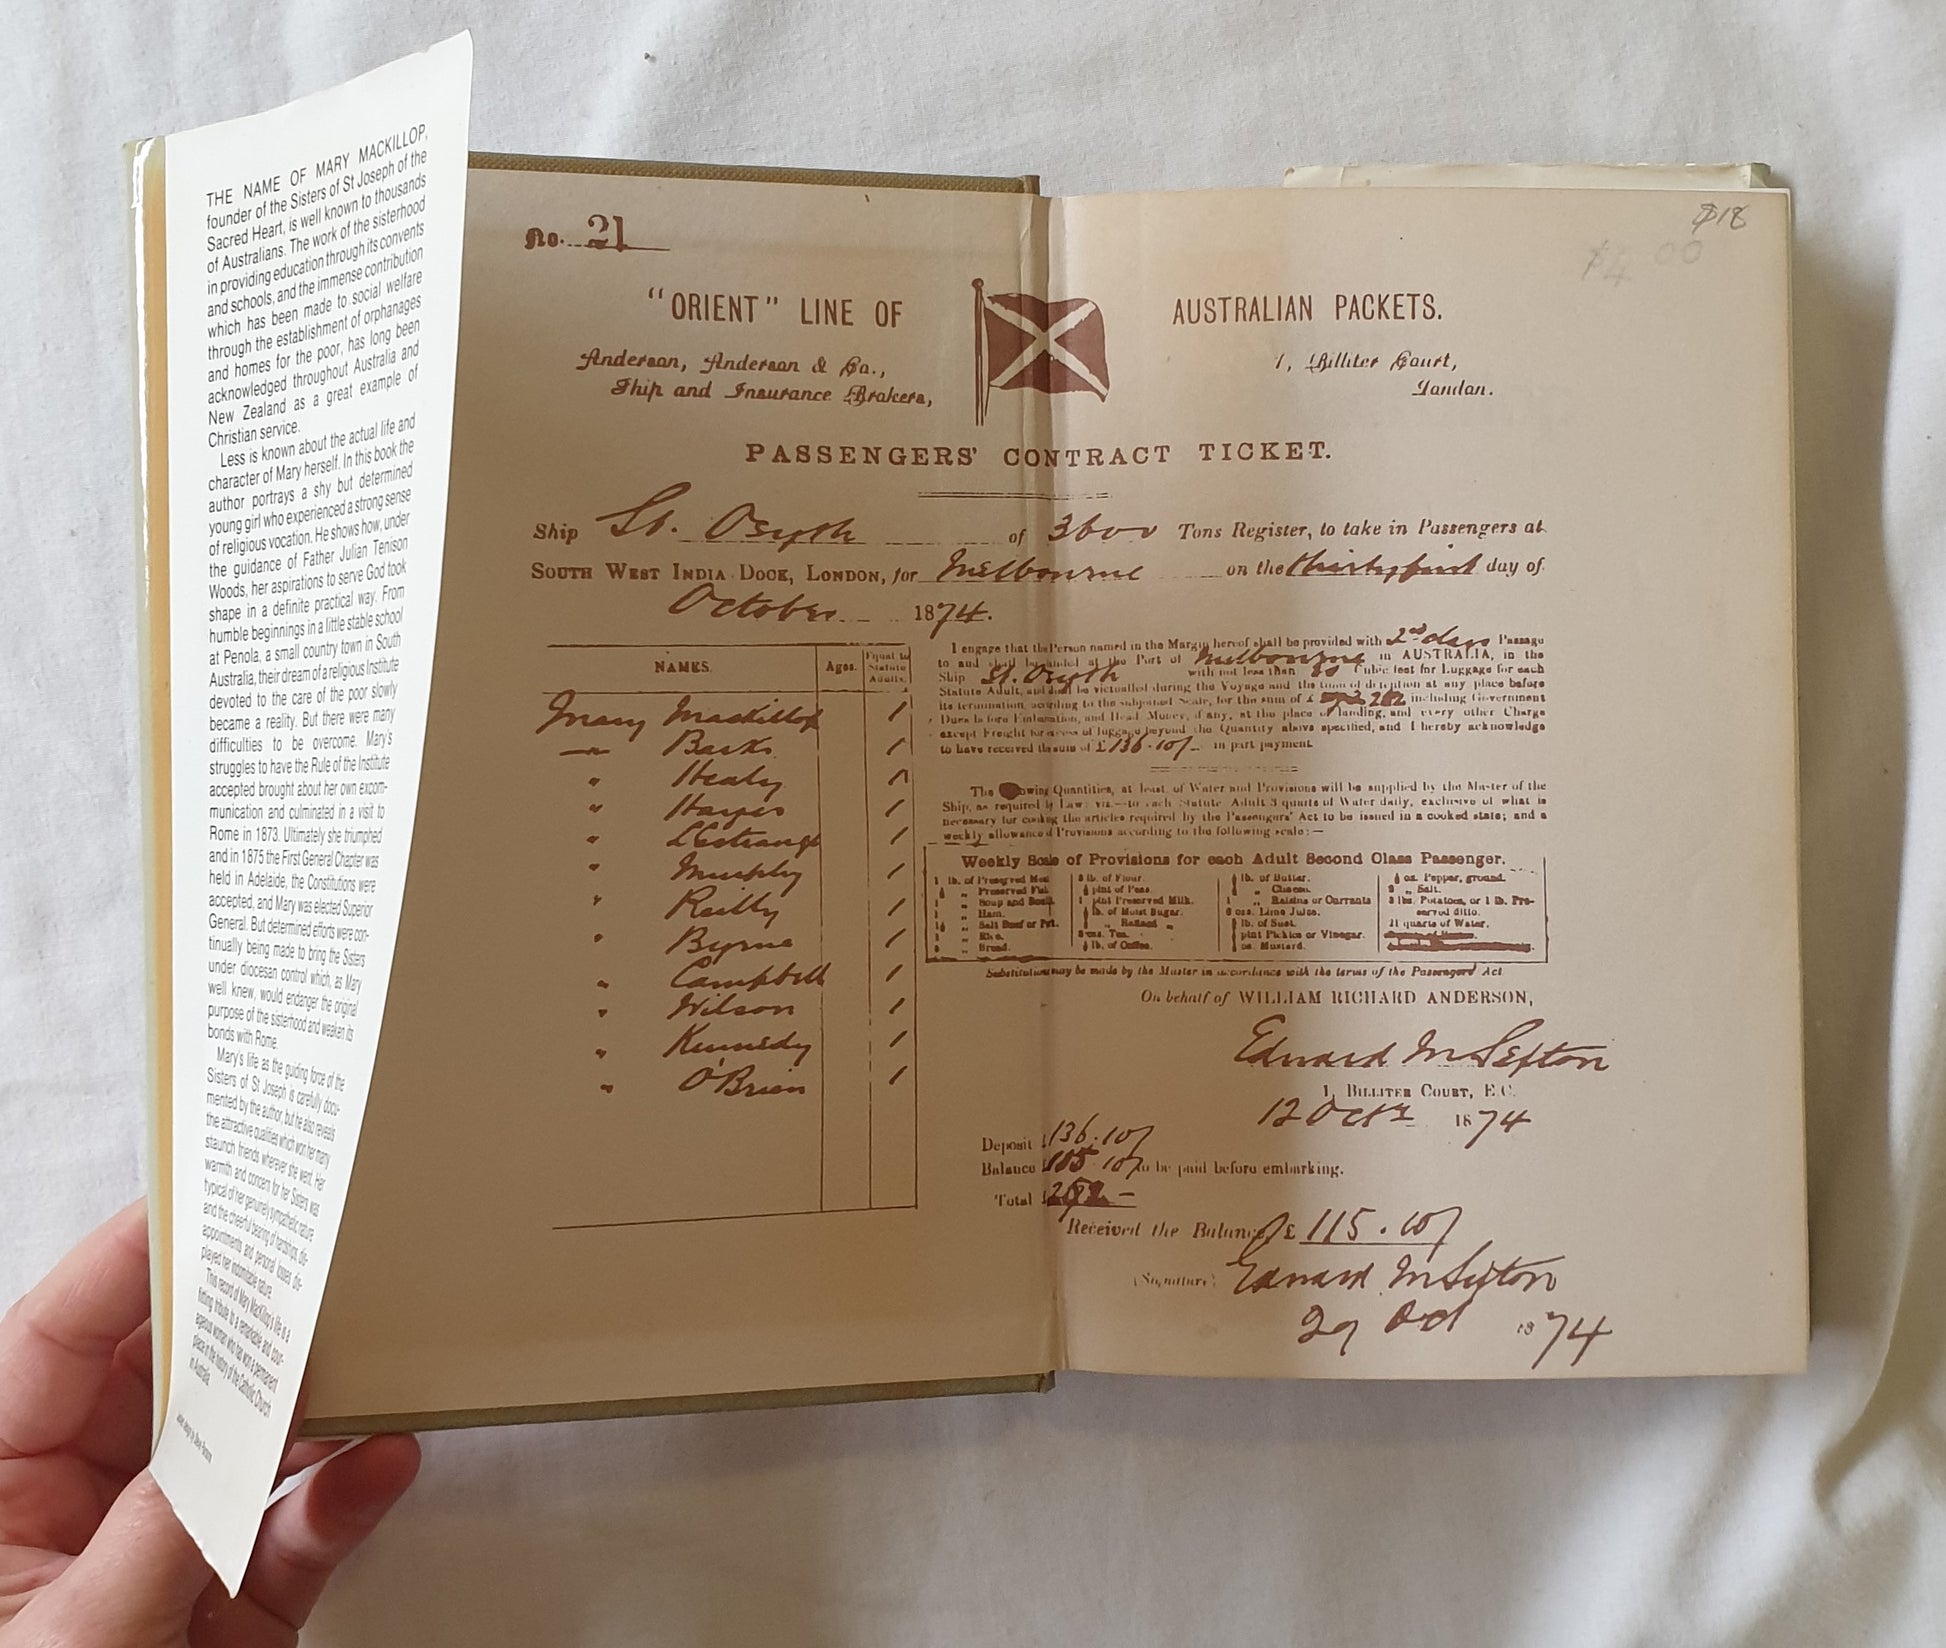 THE NAME OF MARY MACKILLOP,
founder of the Sisters of St Joseph of the
Sacred Heart, is well known to thousands
of Australians. The work of the sisterhood
in providing education through its convents
and schools, and the immense contribution
which has been made to social welfare
through the establishment of orphanages
and homes for the poor, has long been
acknowledged throughout Australia and
New Zealand as a great example of
Christian service.
Less is known about the actual life and
character of Mary herself. In this book the
author portrays a shy but determined
young girl who experienced a strong sense
of religious vocation. He shows how, under
the guidance of Father Julian Tenison
Woods, her aspirations to serve God took
shape in a definite practical way. From
humble beginnings in a little stable school
at Penola, a small country town in South
Australia, their dream of a religious Institute
devoted to the care of the poor slowly
became a reality. But there were many
difficulties to be overcome. Mary's
struggles to have the Rule of the Institute
accepted brought about her own excom-
munication and culminated in a visit to
Rome in 1873. Ultimately she triumphed
and in 1875 the First General Chapter was
held in Adelaide, the Constitutions were
accepted, and Mary was elected Superior
General. But determined efforts were con-
tinually being made to bring the Sisters
under diocesan control which, as Mary
well knew, would endanger the original
purpose of the sisterhood and weaken its
bonds with Rome.
Mary's life as the guiding force of the
Sisters of St Joseph is carefully docu-
mented by the author, but he also reveals
the attractive qualities which won her many
staunch friends wherever she went. Her
warmth and concern for her Sisters was
typical of her genuinely sympathetic nature
and the cheerful bearing of hardships, dis-
appointments and personal losses dis-
played her indomitable nature.
This record of Mary MacKillop's life is a
fitting tribute to a remarkable and cour-
ageous woman who has won a permanent
place in the history of the Catholic Church
in Australia.
No. 21
$18
$4.00
"ORIENT" LINE OF AUSTRALIAN PACKETS.
Anderson, Anderson & Co., 1, Billiter Court,
Ship and Insurance Brokers, London.
PASSENGERS' CONTRACT TICKET.
Ship St. Osyth of 3600 Tons Register, to take in Passengers at
SOUTH WEST INDIA DOCK, LONDON, for Melbourne on the thirty first day of
October 1874.
NAMES. Ages. Equal to Statute Adults.
Mary Mackillop 1
" Barks 1
" Healy 1
" Harper 1
" L'Estrange 1
" Murphy 1
" Reilly 1
" Byrne 1
" Campbell 1
" Wilson 1
" Kennedy 1
" O'Brien 1
I engage that the Person named in the Margin hereof shall be provided with 2nd class Passage
to and shall be landed at the Port of Melbourne in AUSTRALIA, in the
Ship St. Osyth with not less than Cubic feet for Luggage for each
Statute Adult, and shall be victualled during the Voyage and the time of detention at any place before
its termination, according to the subjoined Scale, for the sum of £ 252 including Government
Dues before Embarkation, and Head Money, if any, at the place of landing, and every other Charge
except Freight for excess of luggage beyond the Quantity above specified, and I hereby acknowledge
to have received the sum of £136.10/- in part payment.
The owing Quantities, at least, of Water and Provisions will be supplied by the Master of the
Ship, as required by Law: viz.—to each Statute Adult 3 quarts of Water daily, exclusive of what is
necessary for cooking the articles required by the Passengers' Act to be issued in a cooked state; and a
weekly allowance of Provisions according to the following scale:—
Weekly Scale of Provisions for each Adult Second Class Passenger.
1 lb. of Preserved Meat
" Preserved Fish
" Soup and Bouilli
" Ham.
" Salt Beef or Prk.
" Rice.
" Bread.
lb. of Flour.
pint of Peas.
1 pint Preserved Milk.
lb. of Moist Sugar.
" Refined "
ozs. Tea.
lb. of Coffee.
lb. of Butter.
" Cheese.
" Raisins or Currants
6 ozs. Lime Juice.
lb. of Suet.
pint Pickles or Vinegar.
oz. Mustard.
oz. Pepper, ground.
" Salt.
3 lbs. Potatoes, or 1 lb. Pre-
served ditto.
21 quarts of Water.
Substitutions may be made by the Master in accordance with the terms of the Passengers' Act.
On behalf of WILLIAM RICHARD ANDERSON,
Edward M Sefton
1, BILLITER COURT, E.C.
12 Octr 1874
Deposit £136.10/
Balance £ 10/ to be paid before embarking.
Total £
Received the Balance, £ 115.10/
(Signature) Edward M Sefton
29 Oct 1874